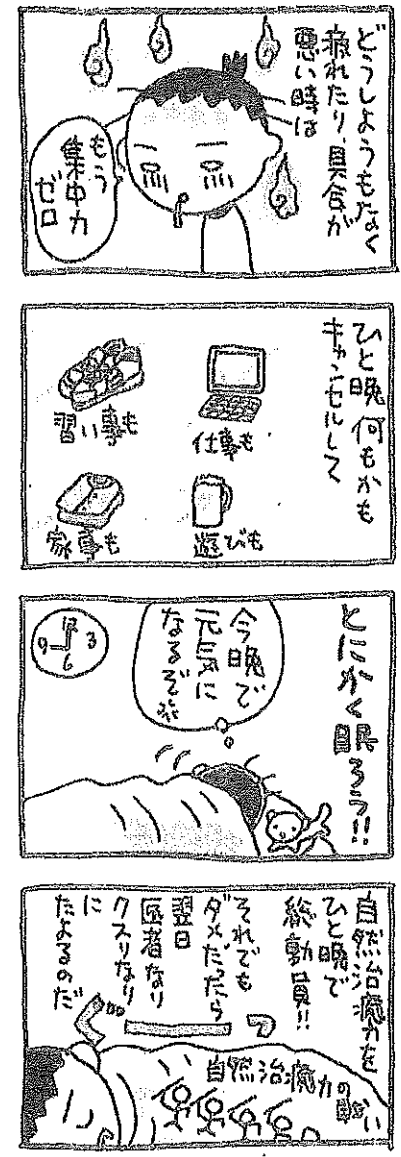 どうしようもなく
疲れたり、具合が
悪い時は
もう
集中力
ゼロ
ひと晩何もかも
キャンセルして
仕事も
習い事も
遊びも
家事も
とにかく眠ろう!!
今晩で
元気に
なるぞ
12
3
6
9
自然治癒力を
ひと晩で
総動員!!
それでも
ダメだったら
翌日
医者なり
クスリなり
に
たよるのだ
ぐーっ
自然治癒力の闘い